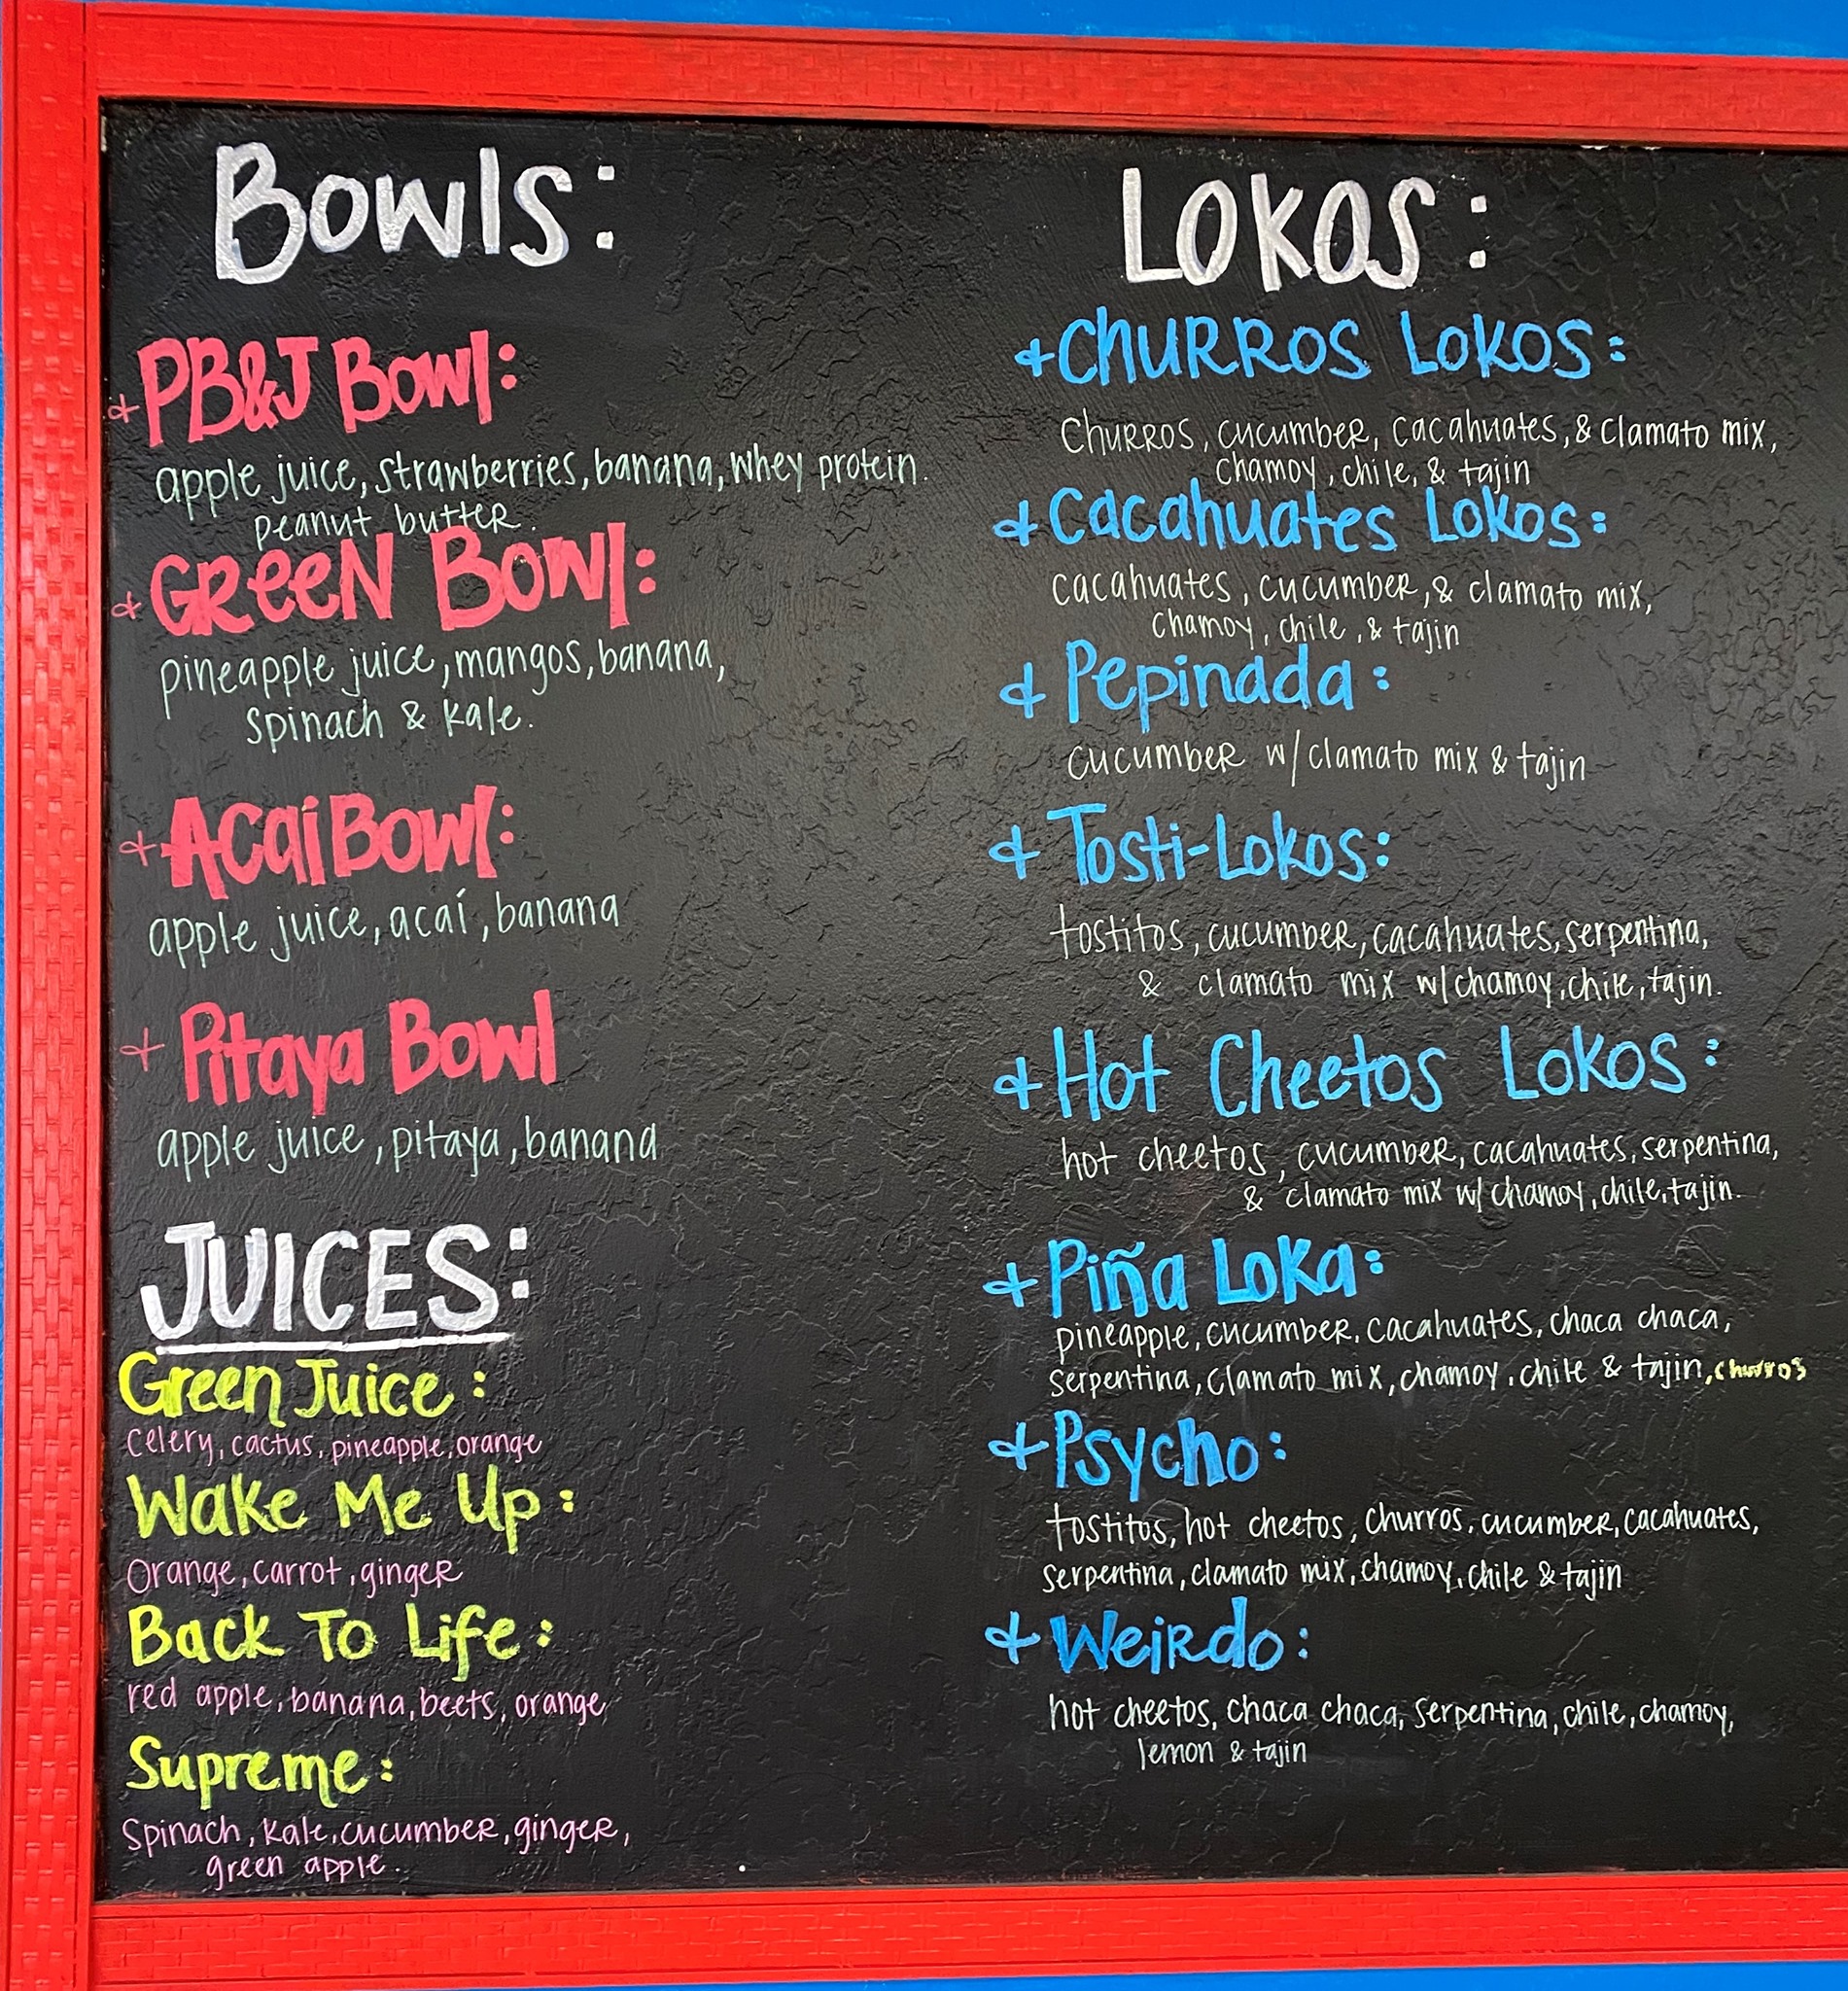 Bowls:
+PB&J Bowl:
apple juice, strawberries, banana, whey protein.
peanut butter.
+GReeN Bowl:
pineapple juice, mangos, banana,
spinach & kale.
+Acai Bowl:
apple juice, acaí, banana
+ Pitaya Bowl
apple juice, pitaya, banana
JUICES:
Green Juice:
Celery, cactus, pineapple, orange
Wake Me Up:
Orange, carrot, ginger
Back To Life:
red apple, banana, beets, orange
Supreme:
Spinach, kale, cucumber, ginger,
green apple.
LOKOS:
+ChURROS LOKOS:
ChURROS, cucumber, cacahuates, & clamato mix,
chamoy, chile, & tajin
+Cacahuates Lokos:
cacahuates, cucumber, & clamato mix,
chamoy, chile, & tajin
+ Pepinada:
cucumber w/ clamato mix & tajin
+ Tosti-Lokos:
tostitos, cucumber, cacahuates, serpentina,
& clamato mix w/ chamoy, chile, tajin.
+Hot Cheetos Lokos:
hot cheetos, cucumber, cacahuates, serpentina,
& clamato mix w/ chamoy, chile, tajin.
+Piña Loka:
pineapple, cucumber, cacahuates, chaca chaca,
serpentina, clamato mix, chamoy, chile & tajin, churros
+Psycho:
tostitos, hot cheetos, churros, cucumber, cacahuates,
serpentina, clamato mix, chamoy, chile & tajin
+ Weirdo:
hot cheetos, chaca chaca, serpentina, chile, chamoy,
lemon & tajin